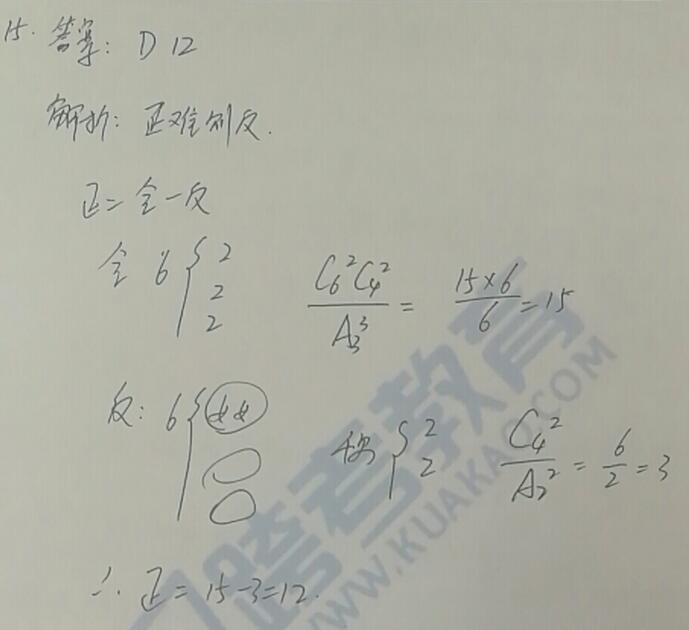 15. 答案: D 12
解析: 正难则反.
正=全-反
全 6 { 2 2 2 C₆²C₄²/A₃³ = 15×6/6 = 15
反: 6 { 剩 { 2 2 C₄²/A₂² = 6/2 = 3
∴ 正 = 15-3=12.
跨考教育
WWW.KUAKAO.COM